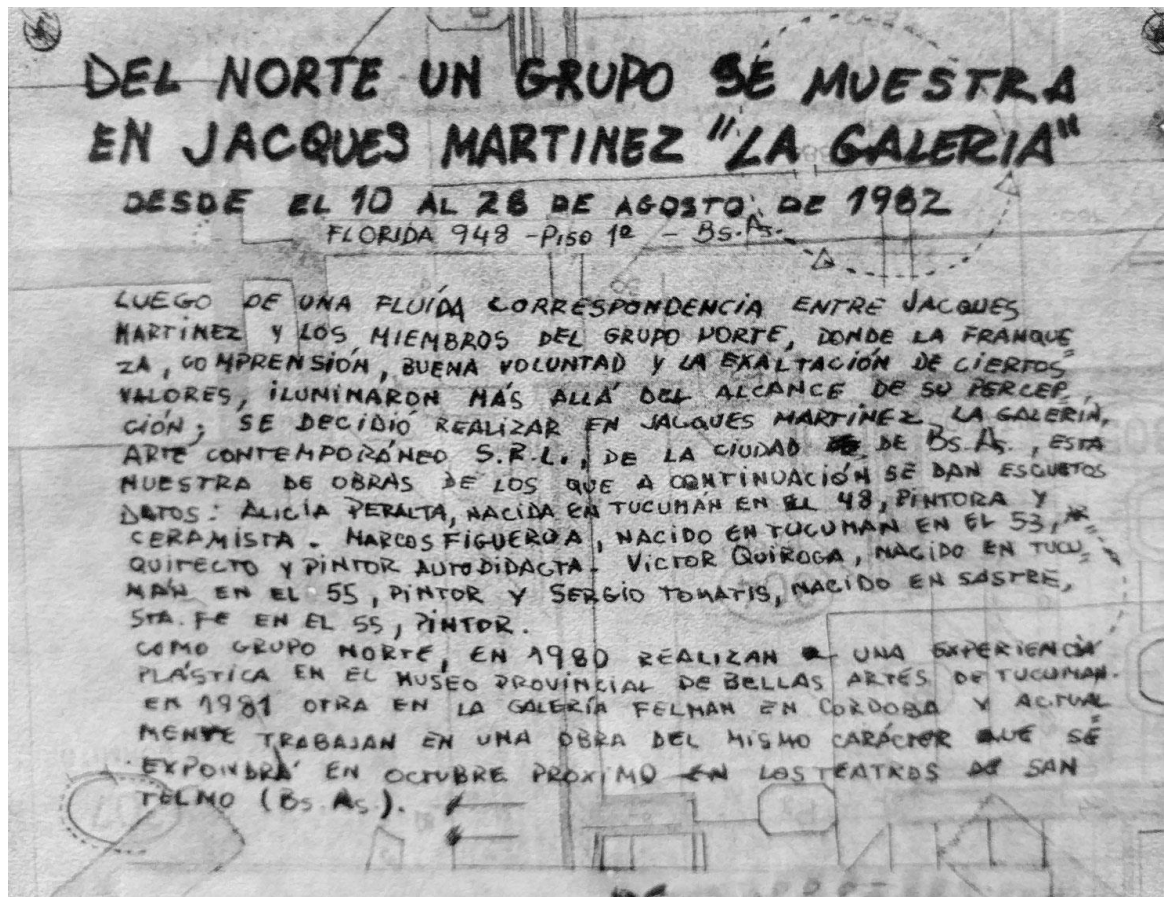 DEL NORTE UN GRUPO SE MUESTRA
EN JACQUES MARTINEZ "LA GALERIA"
DESDE EL 10 AL 28 DE AGOSTO DE 1982
FLORIDA 948 - PISO 1º - Bs. As.
LUEGO DE UNA FLUÍDA CORRESPONDENCIA ENTRE JACQUES
MARTINEZ Y LOS MIEMBROS DEL GRUPO NORTE, DONDE LA FRANQUE
ZA, COMPRENSIÓN, BUENA VOLUNTAD Y LA EXALTACIÓN DE CIERTOS
VALORES, ILUMINARON MÁS ALLÁ DEL ALCANCE DE SU PERCEP_
CIÓN; SE DECIDIÓ REALIZAR EN JACQUES MARTINEZ, LA GALERIA,
ARTE CONTEMPORÁNEO S.R.L., DE LA CIUDAD DE Bs. As., ESTA
MUESTRA DE OBRAS DE LOS QUE A CONTINUACIÓN SE DAN ESCUETOS
DATOS: ALICIA PERALTA, NACIDA EN TUCUMÁN EN EL 48, PINTORA Y
CERAMISTA. MARCOS FIGUEROA, NACIDO EN TUCUMAN EN EL 53, AR
QUITECTO Y PINTOR AUTODIDACTA. VICTOR QUIROGA, NACIDO EN TUCU_
MÁN EN EL 55, PINTOR Y SERGIO TOMATIS, NACIDO EN SASTRE,
STA. FE EN EL 55, PINTOR.
COMO GRUPO NORTE, EN 1980 REALIZAN UNA EXPERIENCIA
PLÁSTICA EN EL MUSEO PROVINCIAL DE BELLAS ARTES DE TUCUMAN.
EN 1981 OTRA EN LA GALERÍA FELMAN EN CORDOBA Y ACTUAL
MENTE TRABAJAN EN UNA OBRA DEL MISMO CARÁCTER QUE SE
EXPONDRÁ EN OCTUBRE PROXIMO EN LOS TEATROS DE SAN
TELMO (Bs. As.).